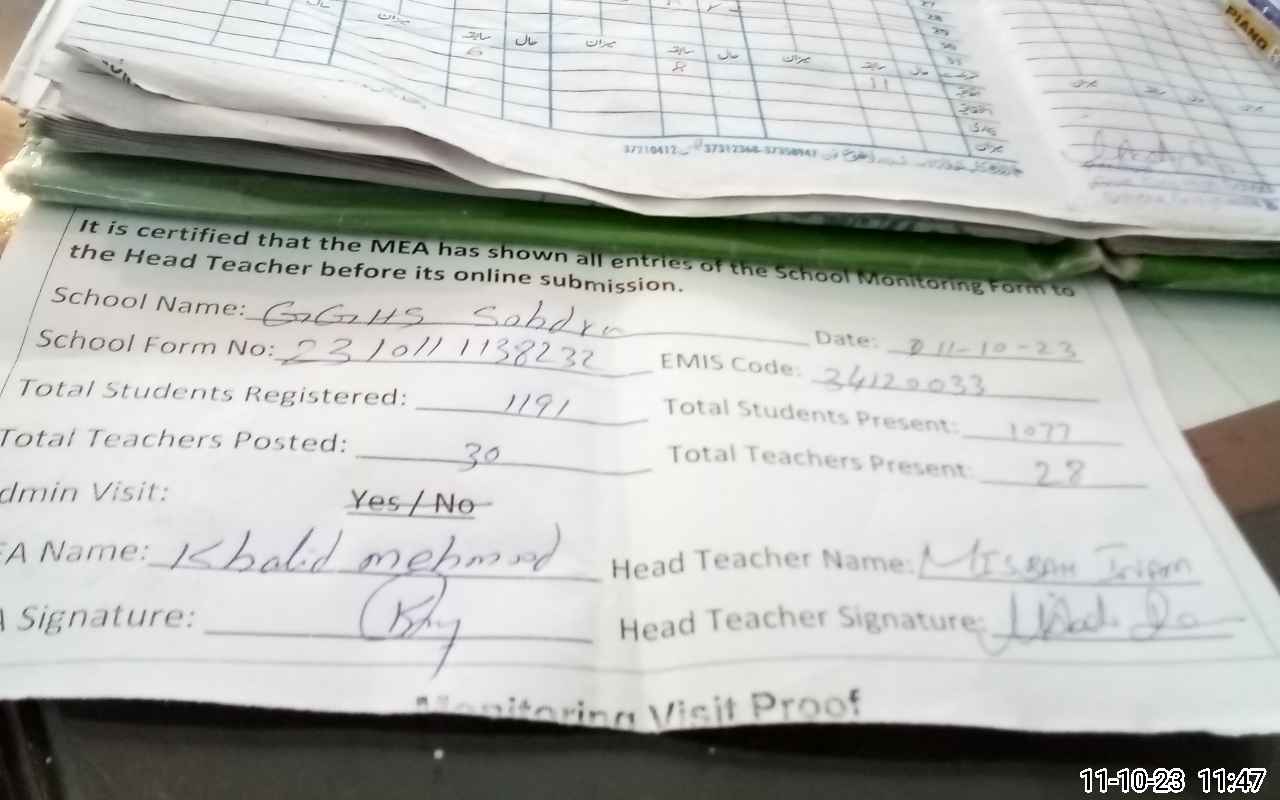 PIANO
27
28
29
30
31
میزان
سابقہ
حال
میزان
سابقہ
حال
میزان
سابقہ
حال
6
8
11
میزان
37210412 37312368-37358947
It is certified that the MEA has shown all entries of the School Monitoring Form to
the Head Teacher before its online submission.
School Name: GGHS Sabdrn
Date: 011-10-23
School Form No: 231011138232
EMIS Code: 34120033
Total Students Registered: 1191
Total Students Present: 1077
Total Teachers Posted: 30
Total Teachers Present: 28
dmin Visit: Yes / No
EA Name: Khalid mehmood
Head Teacher Name: MISBAH Inam
A Signature:
Head Teacher Signature:
Monitoring Visit Proof
11-10-23 11:47